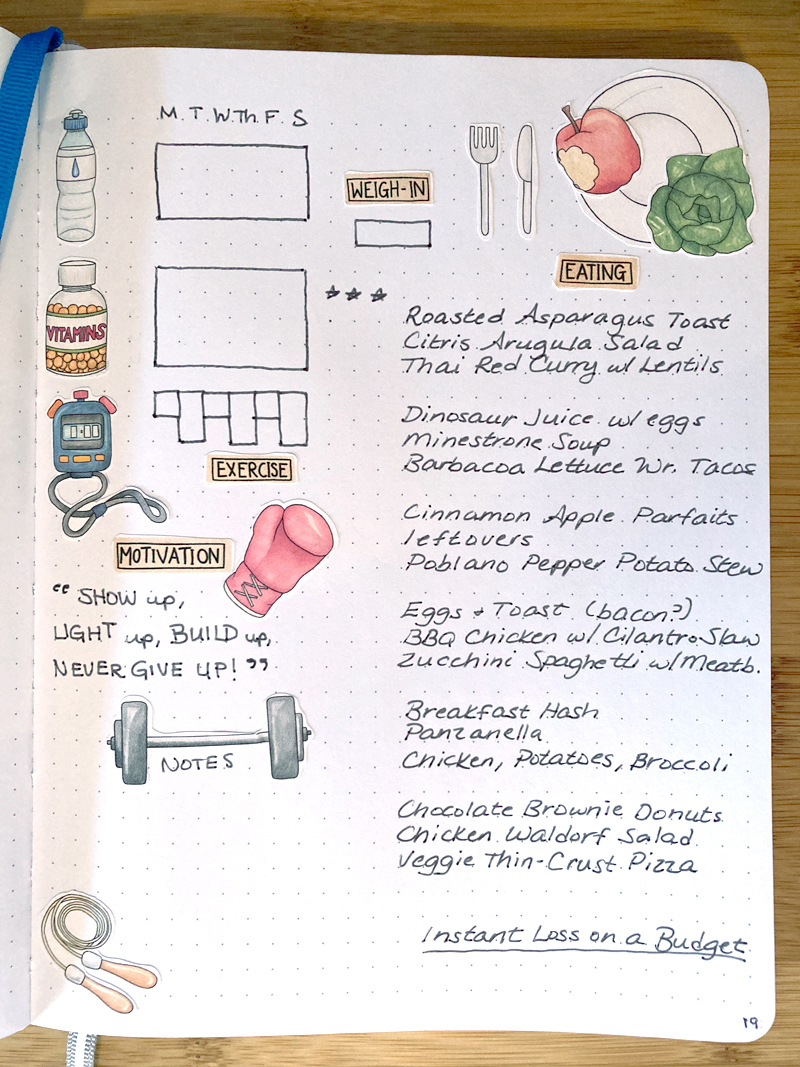 M. T. W. Th. F. S
WEIGH-IN
EATING
VITAMINS
Roasted Asparagus Toast
Citris Arugula Salad
Thai Red Curry w/ Lentils
Dinosaur Juice w/ eggs
Minestrone Soup
Barbacoa Lettuce Wr. Tacos
EXERCISE
Cinnamon Apple Parfaits
leftovers
Poblano Pepper Potato Stew
MOTIVATION
"SHOW up,
LIGHT up, BUILD up,
NEVER GIVE UP!"
Eggs + Toast (bacon?)
BBQ Chicken w/ Cilantro Slaw
Zucchini Spaghetti w/ Meatb.
Breakfast Hash
Panzanella
Chicken, Potatoes, Broccoli
NOTES
Chocolate Brownie Donuts
Chicken Waldorf Salad
Veggie Thin-Crust Pizza
Instant Loss on a Budget
19